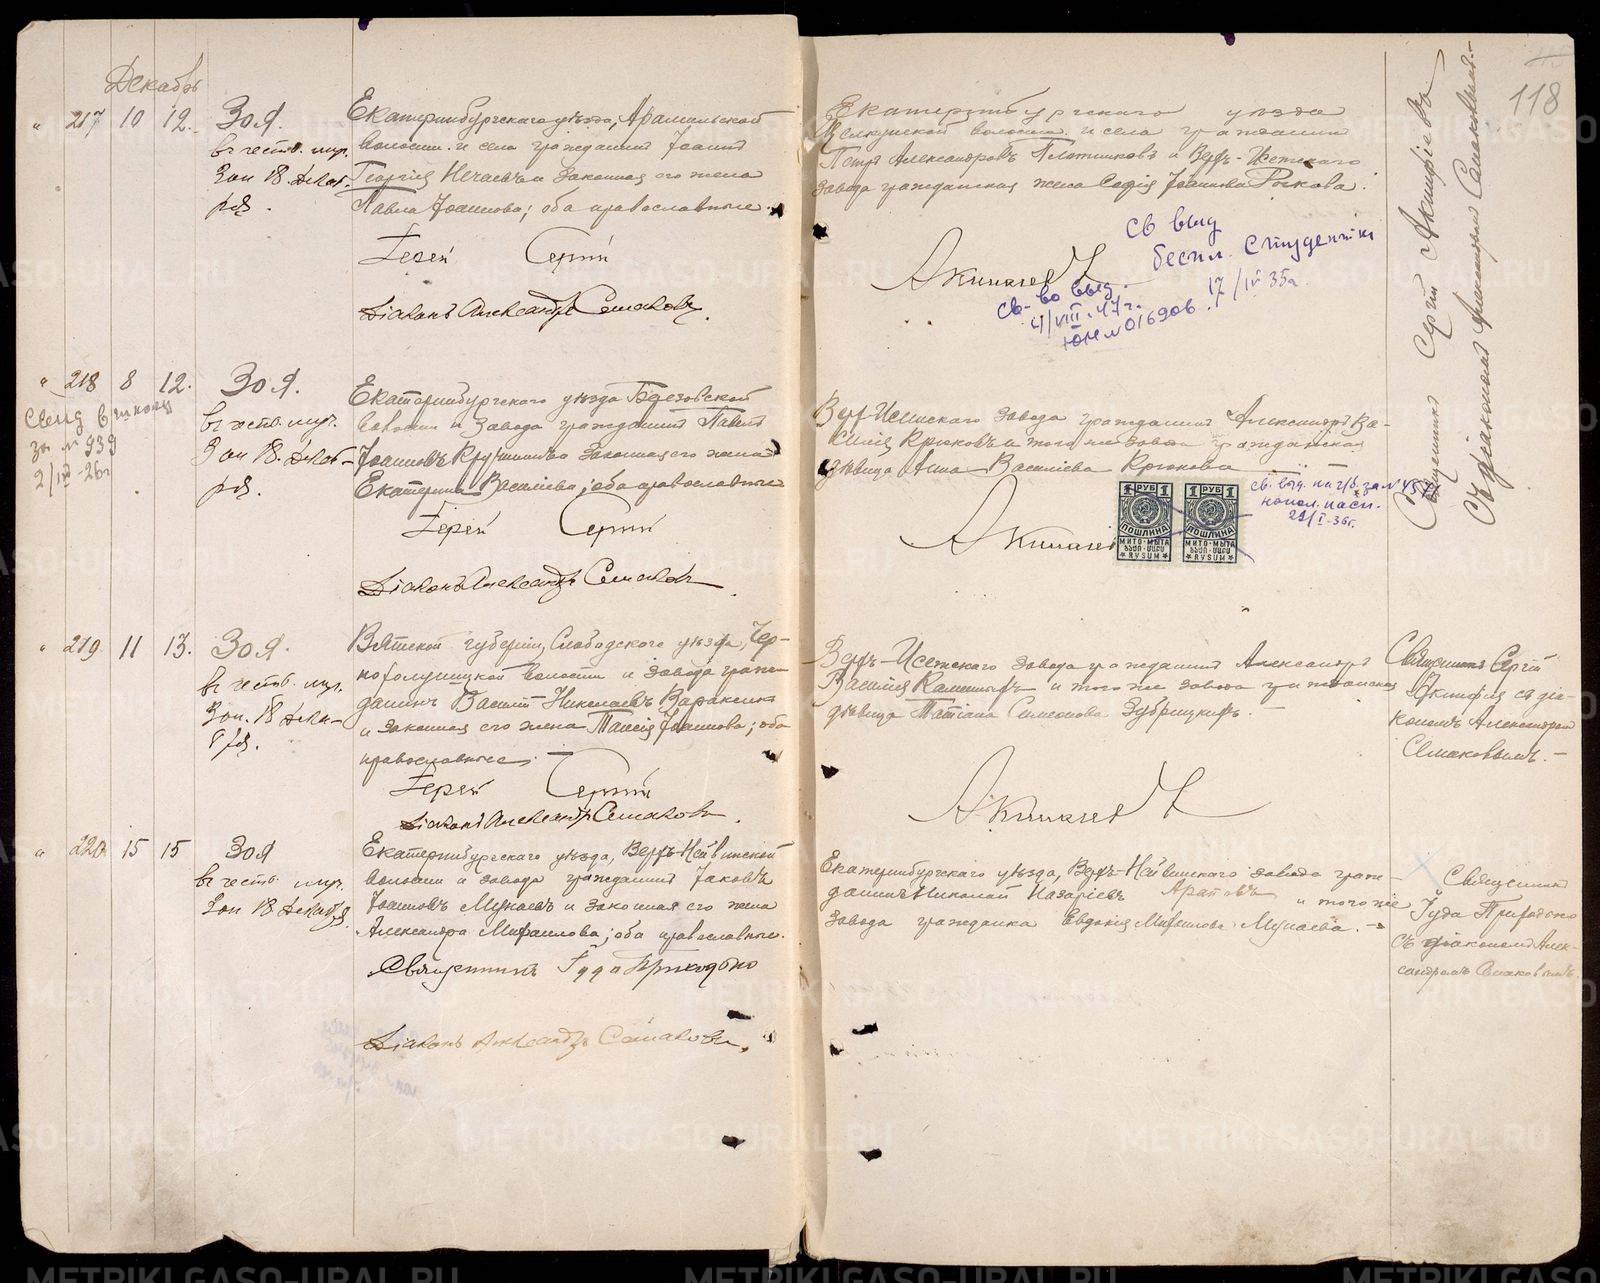 Декабрь
118
217 10 12. Зоя.
въ честь муч.
Зои 18 Декаб-
ря.
Екатеринбургскаго уѣзда, Арамильской
волости и села гражданинъ Іоаннъ
Георгіев Нечаевъ и законная его жена
Павла Іоаннова; оба православные.
Іерей Сергій
Діаконъ Александръ Семаковъ.
Екатеринбургскаго уѣзда
волости и села гражданинъ
Петръ Александровъ Плотниковъ и Верхъ-Исетскаго
завода гражданская жена Софія Іоаннова Рожкова.
Акишев
св выд
беспл. студентки
17/IV 35г.
св-во выд.
4/VIII-47г.
ЮМ № 016906
Священникъ Сергій Акишевъ
съ діакономъ Александромъ Семаковымъ.-
218 8 12. Зоя.
въ честь муч.
Зои 18 Декаб-
ря.
свид в школу
за № 939
2/IV-26г
Екатеринбургскаго уѣзда Березовской
волости и завода гражданинъ Павелъ
Іоанновъ и законная его жена
Екатерина Василіева; оба православные
Іерей Сергій
Діаконъ Александръ Семаковъ.
Верх-Исетскаго завода гражданинъ Александръ Ва-
силіев Крюковъ и того же завода гражданская
дѣвица Анна Василіева Крюкова
Акишев
1 РУБ 1
ПОШЛИНА
МИТО-МЫТА
RYSUM
1 РУБ 1
ПОШЛИНА
МИТО-МЫТА
RYSUM
св. выд. на г/б. за №
копол. пасп.
29/I-36г.
219 11 13. Зоя.
въ честь муч.
Зои 18 Декаб-
ря.
Вятской губерніи, Слободского уѣзда, Чер-
нохолуницкой волости и завода граж-
данинъ Василій Николаевъ Вараксинъ
и законная его жена Таисія Іоаннова; оба
православные.
Іерей Сергій
Діаконъ Александръ Семаковъ.
Верхъ-Исетскаго завода гражданинъ Александръ
Василіев и того же завода гражданская
дѣвица Татіана Симеонова Зубрицкихъ.
Акишев
Священникъ Сергій
Акишев съ діа-
кономъ Александромъ
Семаковымъ.-
220 15 15 Зоя
въ честь муч.
Зои 18 Декабря.
Екатеринбургскаго уѣзда, Верхъ-Нейвинской
волости и завода гражданинъ Іаковъ
Іоанновъ Мунаевъ и законная его жена
Александра Михаилова; оба православные.
Священникъ Іуда Приходько
Діаконъ Александръ Семаковъ.
Екатеринбургскаго уѣзда, Верхъ-Нейвинскаго завода граж-
данинъ Николай Назаріевъ Араповъ и того же
завода гражданка Евдокія Михаилова Мунаева.
Священникъ
Іуда Приходько
съ діакономъ Алек-
сандромъ Семаковымъ.
METRIKI.GASO-URAL.RU